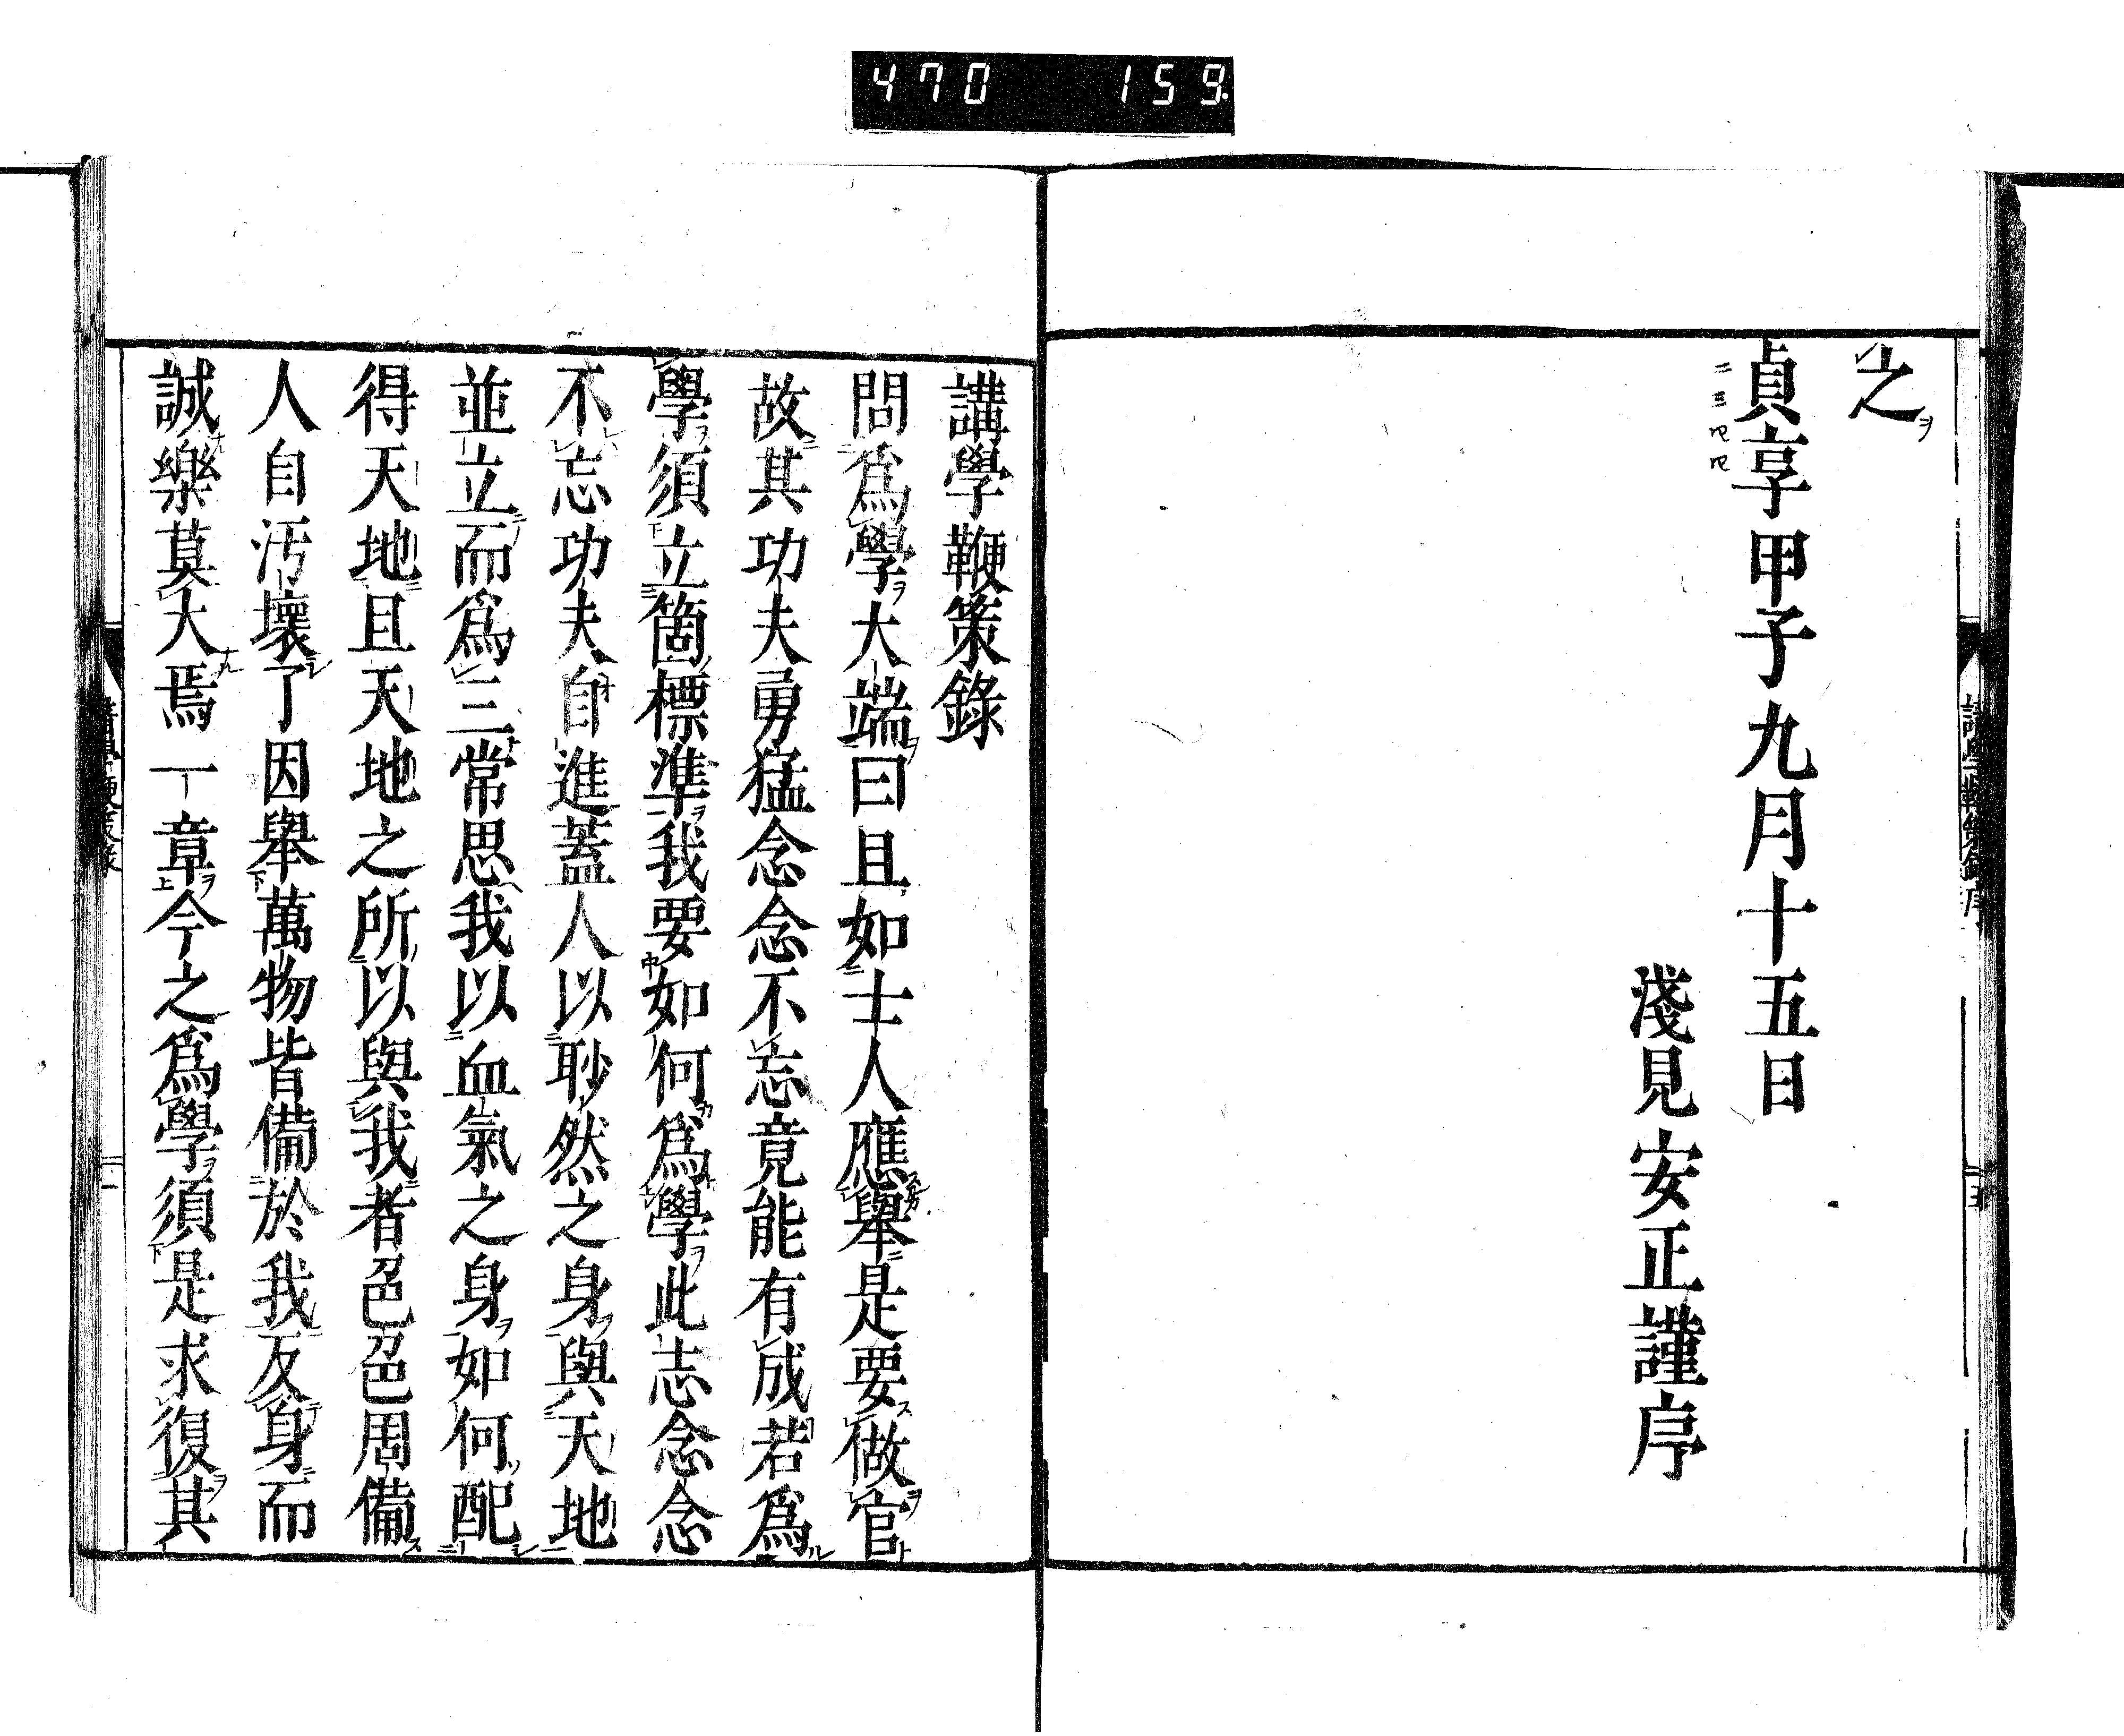 470 159
之
貞享甲子九月十五日
淺見安正謹序
講學鞭策錄
問爲學大端曰且如士人應舉是要做官
故其功夫勇猛念念不忘竟能有成若爲
學須立箇標準我要如何爲學此志念念
不忘功夫自進蓋人以眇然之身與天地
並立而爲三常思我以血氣之身如何配
得天地且天地之所以與我者色色周備
人自汚壞了因舉萬物皆備於我反身而
誠樂莫大焉一章今之爲學須是求復其